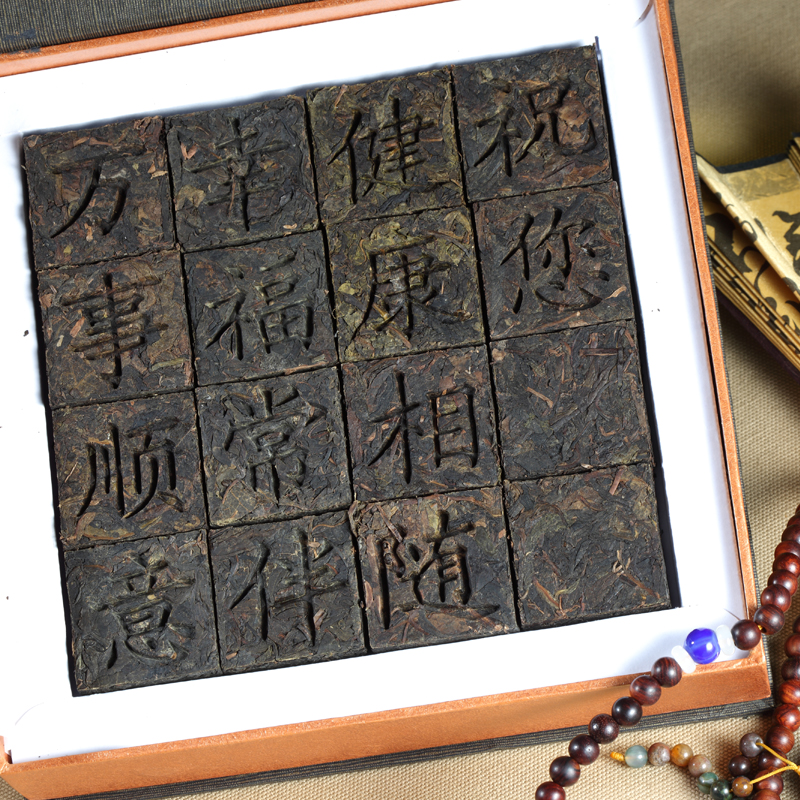 祝您
健康相随
幸福常伴
万事顺意